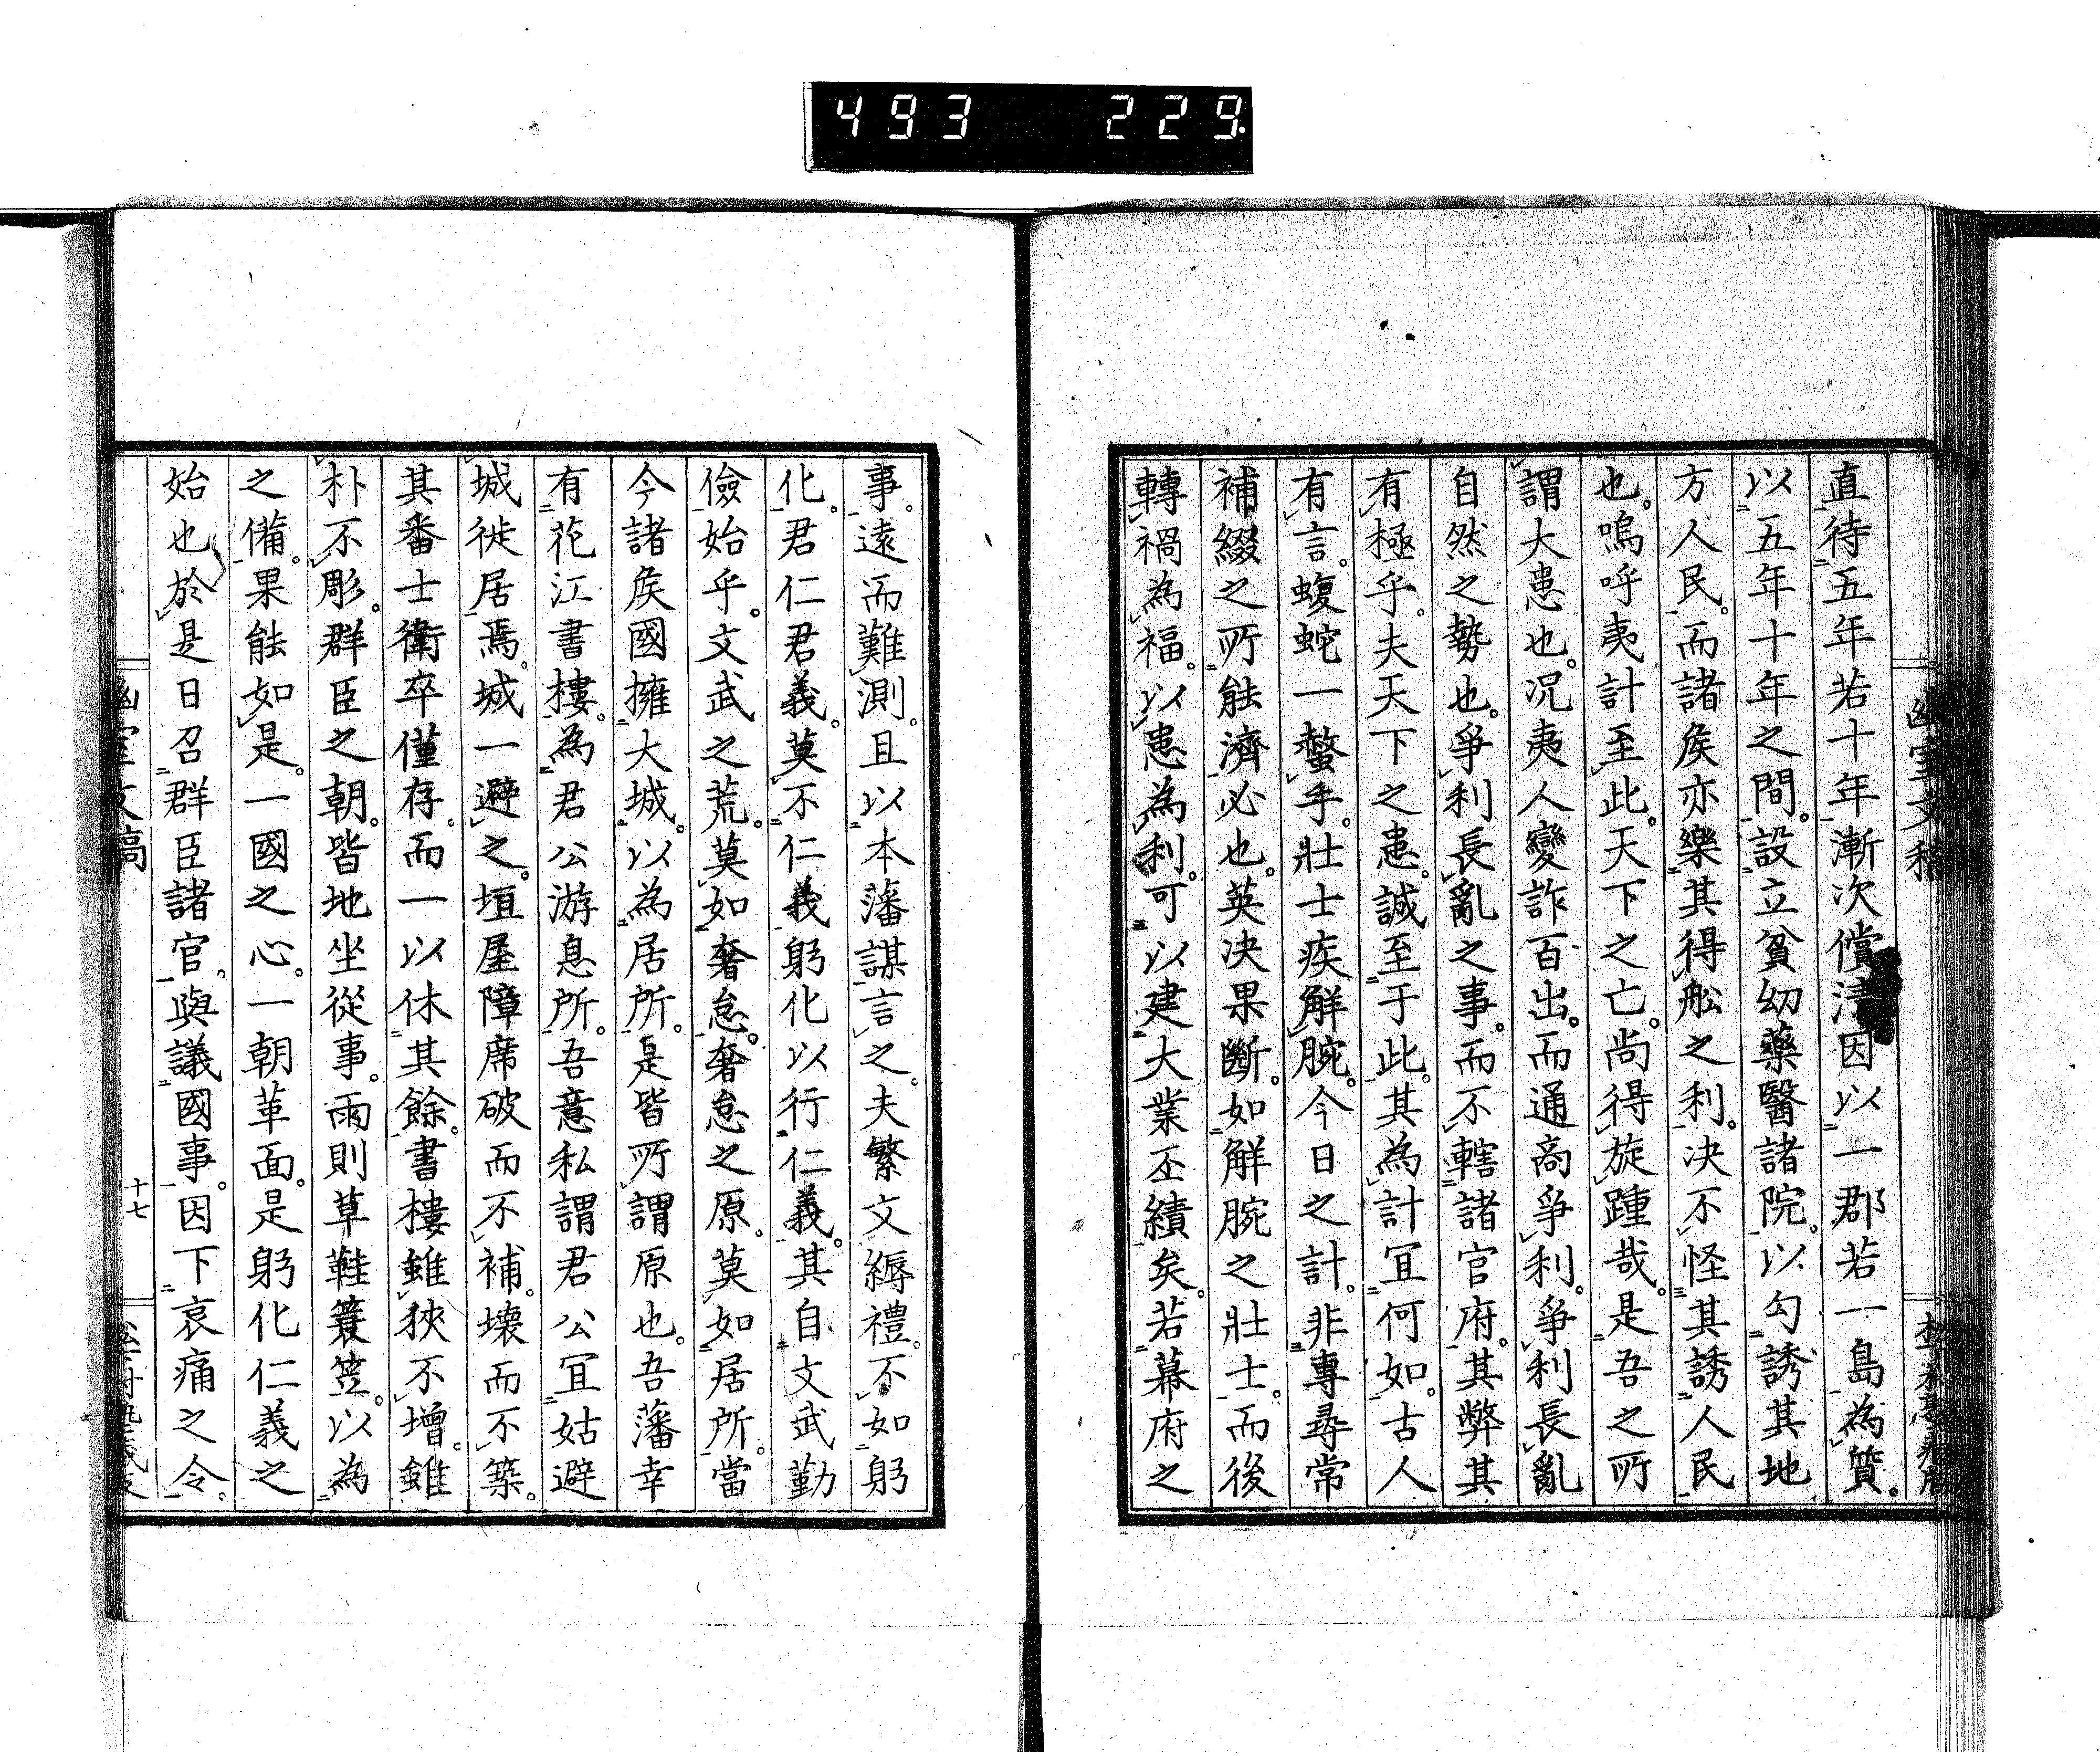 493 229
幽室文稿
直待五年若十年漸次償清因以一郡若一島為質。
以五年十年之間。設立貧幼藥醫諸院。以勾誘其地
方人民。而諸矦亦樂其得舩之利。决不怪其誘人民
也。嗚呼夷計至此。天下之亡。尚得旋踵哉。是吾之所
謂大患也。况夷人變詐百出。而通商爭利。爭利長亂
自然之勢也。爭利長亂之事。而不轄諸官府。其弊其
有極乎。夫天下之患。誠至于此。其為計冝何如。古人
有言。蝮蛇一螫手。壯士疾解腕。今日之計。非專尋常
補綴之所能濟必也。英决果斷。如解腕之壯士。而後
轉禍為福。以患為利。可以建大業丕績矣。若幕府之
事。遠而難測。且以本藩謀言之。夫繁文縟禮。不如躬
化。君仁君義。莫不仁義躬化以行仁義。其自文武勤
儉始乎。文武之荒。莫如奢怠。奢怠之原。莫如居所。當
今諸矦國擁大城。以為居所。是皆所謂原也。吾藩幸
有花江書樓。為君公游息所。吾意私謂君公冝姑避
城徙居焉。城一避之。垣屋障席破而不補。壞而不築。
其番士衛卒僅存。而一以休其餘。書樓雖狹不增。雖
朴不彫。群臣之朝。皆地坐從事。雨則草鞋簑笠。以為
之備。果能如是。一國之心。一朝革面。是躬化仁義之
始也於是日召群臣諸官。與議國事。因下哀痛之令。
幽室文稿
十七